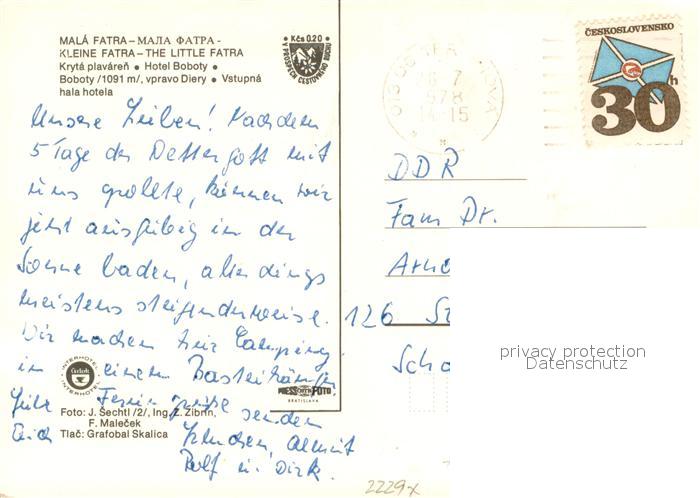 MALÁ FATRA – МАЛА ФАТРА -
KLEINE FATRA – THE LITTLE FATRA
Krytá plaváreň • Hotel Boboty •
Boboty /1091 m/, vpravo Diery • Vstupná
hala hotela
• Kčs 0.20 •
V PROSPECH CESTOVNÉHO RUCHU
ČESKOSLOVENSKO
30h
14-15
Unsere Lieben! Nachdem
5 Tage der Wettergott mit
uns grollte, können wir
jetzt ausgiebig in der
Sonne baden, allerdings
meistens steigenderweise.
Wir machen hier Camping
in einem
Feriengrüße senden
Euch
Rolf u. Dirk.
DDR
Fam Dr.
126
INTERHOTEL
INTERHOTEL
PRESSFOTO
BRATISLAVA
Foto: J. Šechtl /2/, Ing. Z. Zibrín,
F. Maleček
Tlač: Grafobal Skalica
privacy protection
Datenschutz
2229x